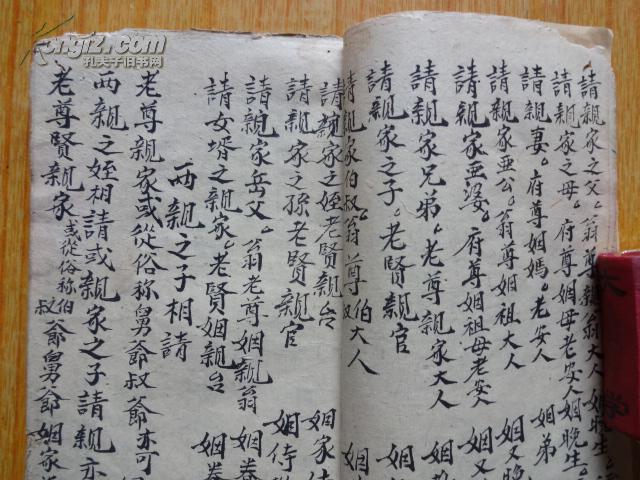 請親家之父。翁尊親翁大人 姻晚生
請親家之母。府尊姻母老安人 姻晚生
請親妻。府尊姻媽。老安人 姻弟
請親家亜公。翁尊姻祖大人 姻又晚
請親家亜婆。府尊姻祖母老安人 姻又
請親家兄弟。老尊親家大人 姻
請親家之子。老賢親官 姻
請親家伯叔。翁尊伯叔大人 姻
請親家之姪老賢親台 姻家侍
請親家之孫老賢親官 姻侍
請親家岳父。翁老尊姻親翁 姻眷
請女壻之親家。老賢姻親台 姻眷
両親之子相請
老尊親家或從俗称舅爺叔爺亦可
両親之姪相請或親家之子請親亦
老尊賢親家或從俗称伯叔爺舅爺 姻家
大
学
kongfz.com
孔夫子旧书网